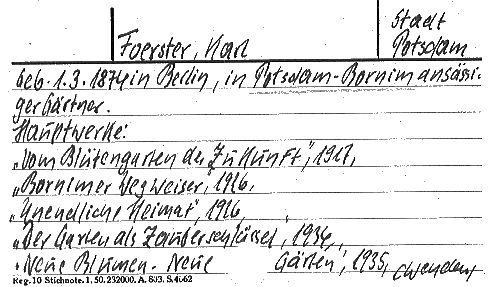 Stadt
Foerster, Karl Potsdam
geb. 1.3.1874 in Berlin, in Potsdam-Bornim ansässi-
ger Gärtner.
Hauptwerke:
„Vom Blütengarten der Zukunft", 1917,
„Bornimer Wegweiser", 1926,
„Unendliche Heimat", 1926,
„Der Garten als Zauberschlüssel, 1934,
„Neue Blumen. Neue Gärten", 1935,
Reg. 10 Stichnote. 1. 50. 232000. A. 803. S. 4062